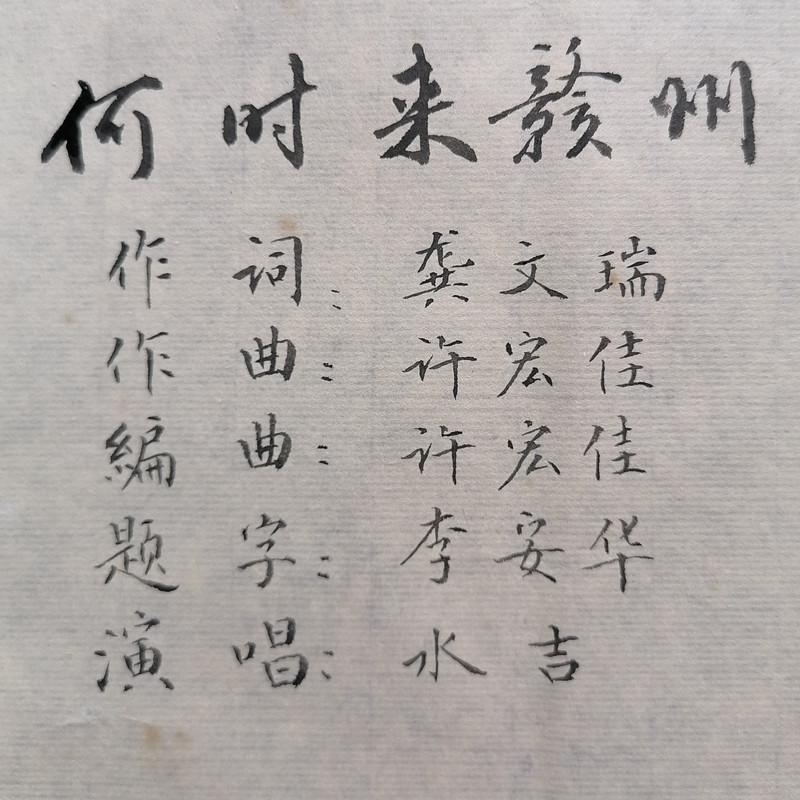 何时来赣州
作词：龚文瑞
作曲：许宏佳
編曲：许宏佳
题字：李妥华
演唱：水吉